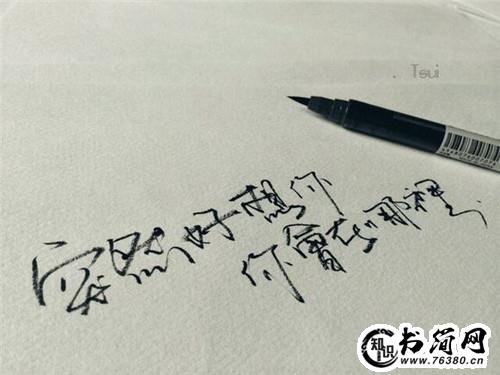 . Tsui
突然好想你
你會在哪裡
知识
书简网
www.76380.cn